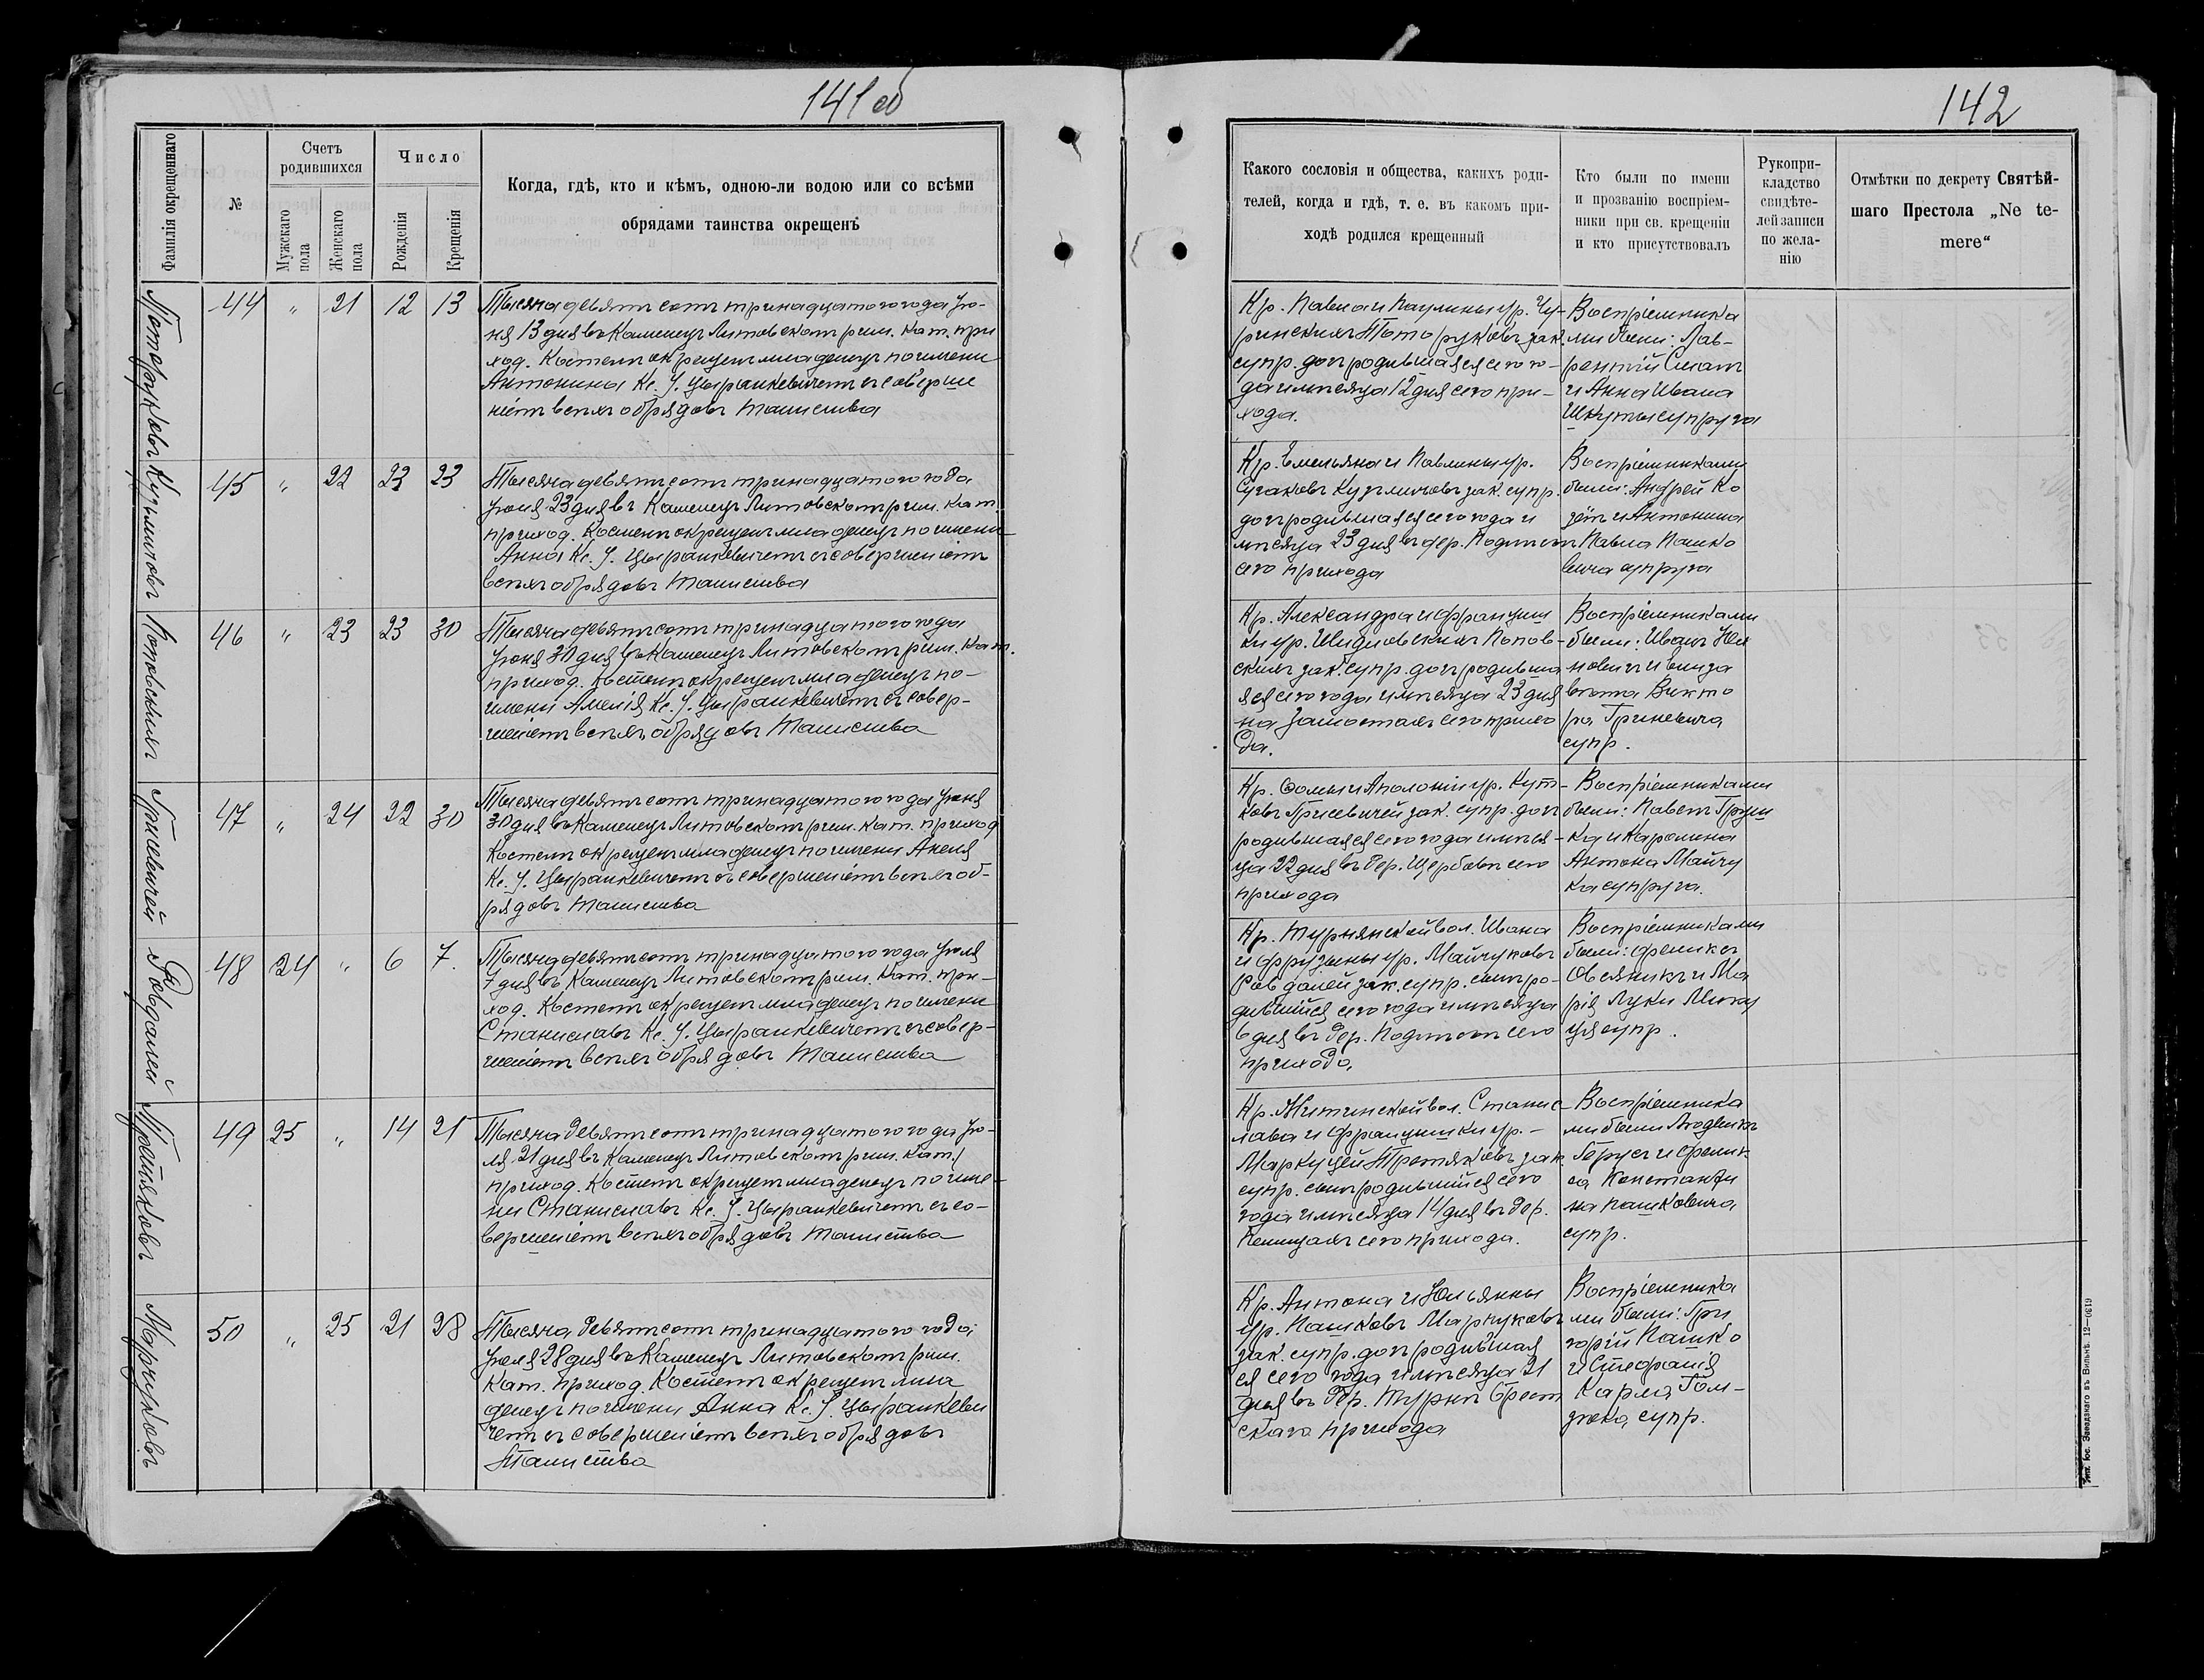 141 об
Фамилія окрещеннаго
№
Счетъ родившихся
Мужскаго пола
Женскаго пола
Число
Рожденія
Крещенія
Когда, гдѣ, кто и кѣмъ, одною-ли водою или со всѣми
обрядами таинства окрещенъ
Потофуковъ
44 " 21 12 13
Тысяча девятьсотъ тринадцатого года Ію-
ня 13 дня въ Каменецъ Литовскомъ рим. кат. при
ход. Костелѣ окрещенъ младенецъ по имени
Антонина Кс. І. Цыранкевичемъ съ соверше
ніемъ всѣхъ обрядовъ Таинства
Кузьмичовъ
45 " 22 23 23
Тысяча девятьсотъ тринадцатого года
Іюня 23 дня въ Каменецъ Литовскомъ рим. кат.
приход. Костелѣ окрещенъ младенецъ по имени
Анна Кс. І. Цыранкевичемъ съ совершеніемъ
всѣхъ обрядовъ Таинства
Поповскихъ
46 " 23 23 30
Тысяча девятьсотъ тринадцатого года
Іюня 30 дня въ Каменецъ Литовскомъ рим. кат.
приход. Костелѣ окрещенъ младенецъ по
имени Амелія Кс. І. Цыранкевичемъ съ совер-
шеніемъ всѣхъ обрядовъ Таинства
Грисевичей
47 " 24 22 30
Тысяча девятьсотъ тринадцатого года Іюня
30 дня въ Каменецъ Литовскомъ рим. кат. приход
Костелѣ окрещенъ младенецъ по имени Анеля
Кс. І. Цыранкевичемъ съ совершеніемъ всѣхъ об-
рядовъ Таинства
Ровдалей
48 24 " 6 7.
Тысяча девятьсотъ тринадцатого года Іюля
7 дня въ Каменецъ Литовскомъ рим. кат. при-
ход. Костелѣ окрещенъ младенецъ по имени
Станиславъ Кс. І. Цыранкевичемъ съ совер-
шеніемъ всѣхъ обрядовъ Таинства
Третяковъ
49 25 " 14 21
Тысяча девятьсотъ тринадцатого года Ію-
ля 21 дня въ Каменецъ Литовскомъ рим. кат.
приход. Костелѣ окрещенъ младенецъ по име-
ни Станиславъ Кс. І. Цыранкевичемъ съ со-
вершеніемъ всѣхъ обрядовъ Таинства
Марчуковъ
50 " 25 21 28
Тысяча девятьсотъ тринадцатого года
Іюля 28 дня въ Каменецъ Литовскомъ рим.
кат. приход. Костелѣ окрещенъ мла
денецъ по имени Анна Кс. І. Цыранкеви
чемъ съ совершеніемъ всѣхъ обрядовъ
Таинства
142
Какого сословія и общества, какихъ роди-
телей, когда и гдѣ, т. е. въ какомъ при-
ходѣ родился крещенный
Кто были по имени
и прозванію воспріем-
ники при св. крещеніи
и кто присутствовалъ
Рукопри-
кладство
свидѣте-
лей записи
по жела-
нію
Отмѣтки по декрету Святѣй-
шаго Престола „Ne te-
mere“
Кр. Павла и Паулины ур. Чу-
ринскихъ зак.
супр. дочь родившаяся сего го-
да и мѣсяца 12 дня сего при-
хода.
Воспріемника
ми были: Лав-
рентій
и Анна Ивана
Шкуты супруга
Кр. Емельяна и Павлины ур.
Сугаковъ Кузьмичовъ зак. супр.
дочь родившаяся сего года и
мѣсяца 23 дня въ дер.
сего прихода
Воспріемниками
были: Андрей Ко
зёлъ и Антонина
Павла Пашко
вича супруга
Кр. Александра и Францишки
ур. Попов-
скихъ зак. супр. дочь родивша
яся сего года и мѣсяца 23 дня
на Замостахъ сего прихо
да.
Воспріемниками
были: Иванъ Юх
новичъ и Елиза
вета Викто
ра Гриневича
супр.
Кр. Ѳомы и Аполоніи ур. Кут-
ковъ Грисевичей зак. супр. дочь
родившаяся сего года и мѣся-
ца 22 дня въ дер. Щербовѣ сего
прихода
Воспріемниками
были: Павелъ Груш
ка и Каролина
Антона Майчу
ка супруга.
Кр. Турнянской вол. Ивана
и Фрузыны ур. Майчуковъ
Ровдалей зак. супр. сынъ ро-
дившійся сего года и мѣсяца
6 дня въ дер. сего
прихода.
Воспріемниками
были: Феликсъ
Овсяникъ и Ма
рія Луки Мику
супр.
Кр. Житинской вол. Станис-
лава и Францишки ур.
Маркуцей Третяковъ зак.
супр. сынъ родившійся сего
года и мѣсяца 14 дня въ дер.
сего прихода.
Воспріемника
ми были Людвикъ
Борусъ и Фелик
са Константи
на Пашковича
супр.
Кр. Антона и Юльянны
ур. Пашковъ Марчуковъ
зак. супр. дочь родившая
ся сего года и мѣсяца 21
дня въ дер. Турнѣ Брест
скаго прихода
Воспріемника
ми были: Гри
горій Пашко
и Стефанія
Карла
супр.
Тип. Іос. Завадзкаго въ Вильнѣ. 12—0619